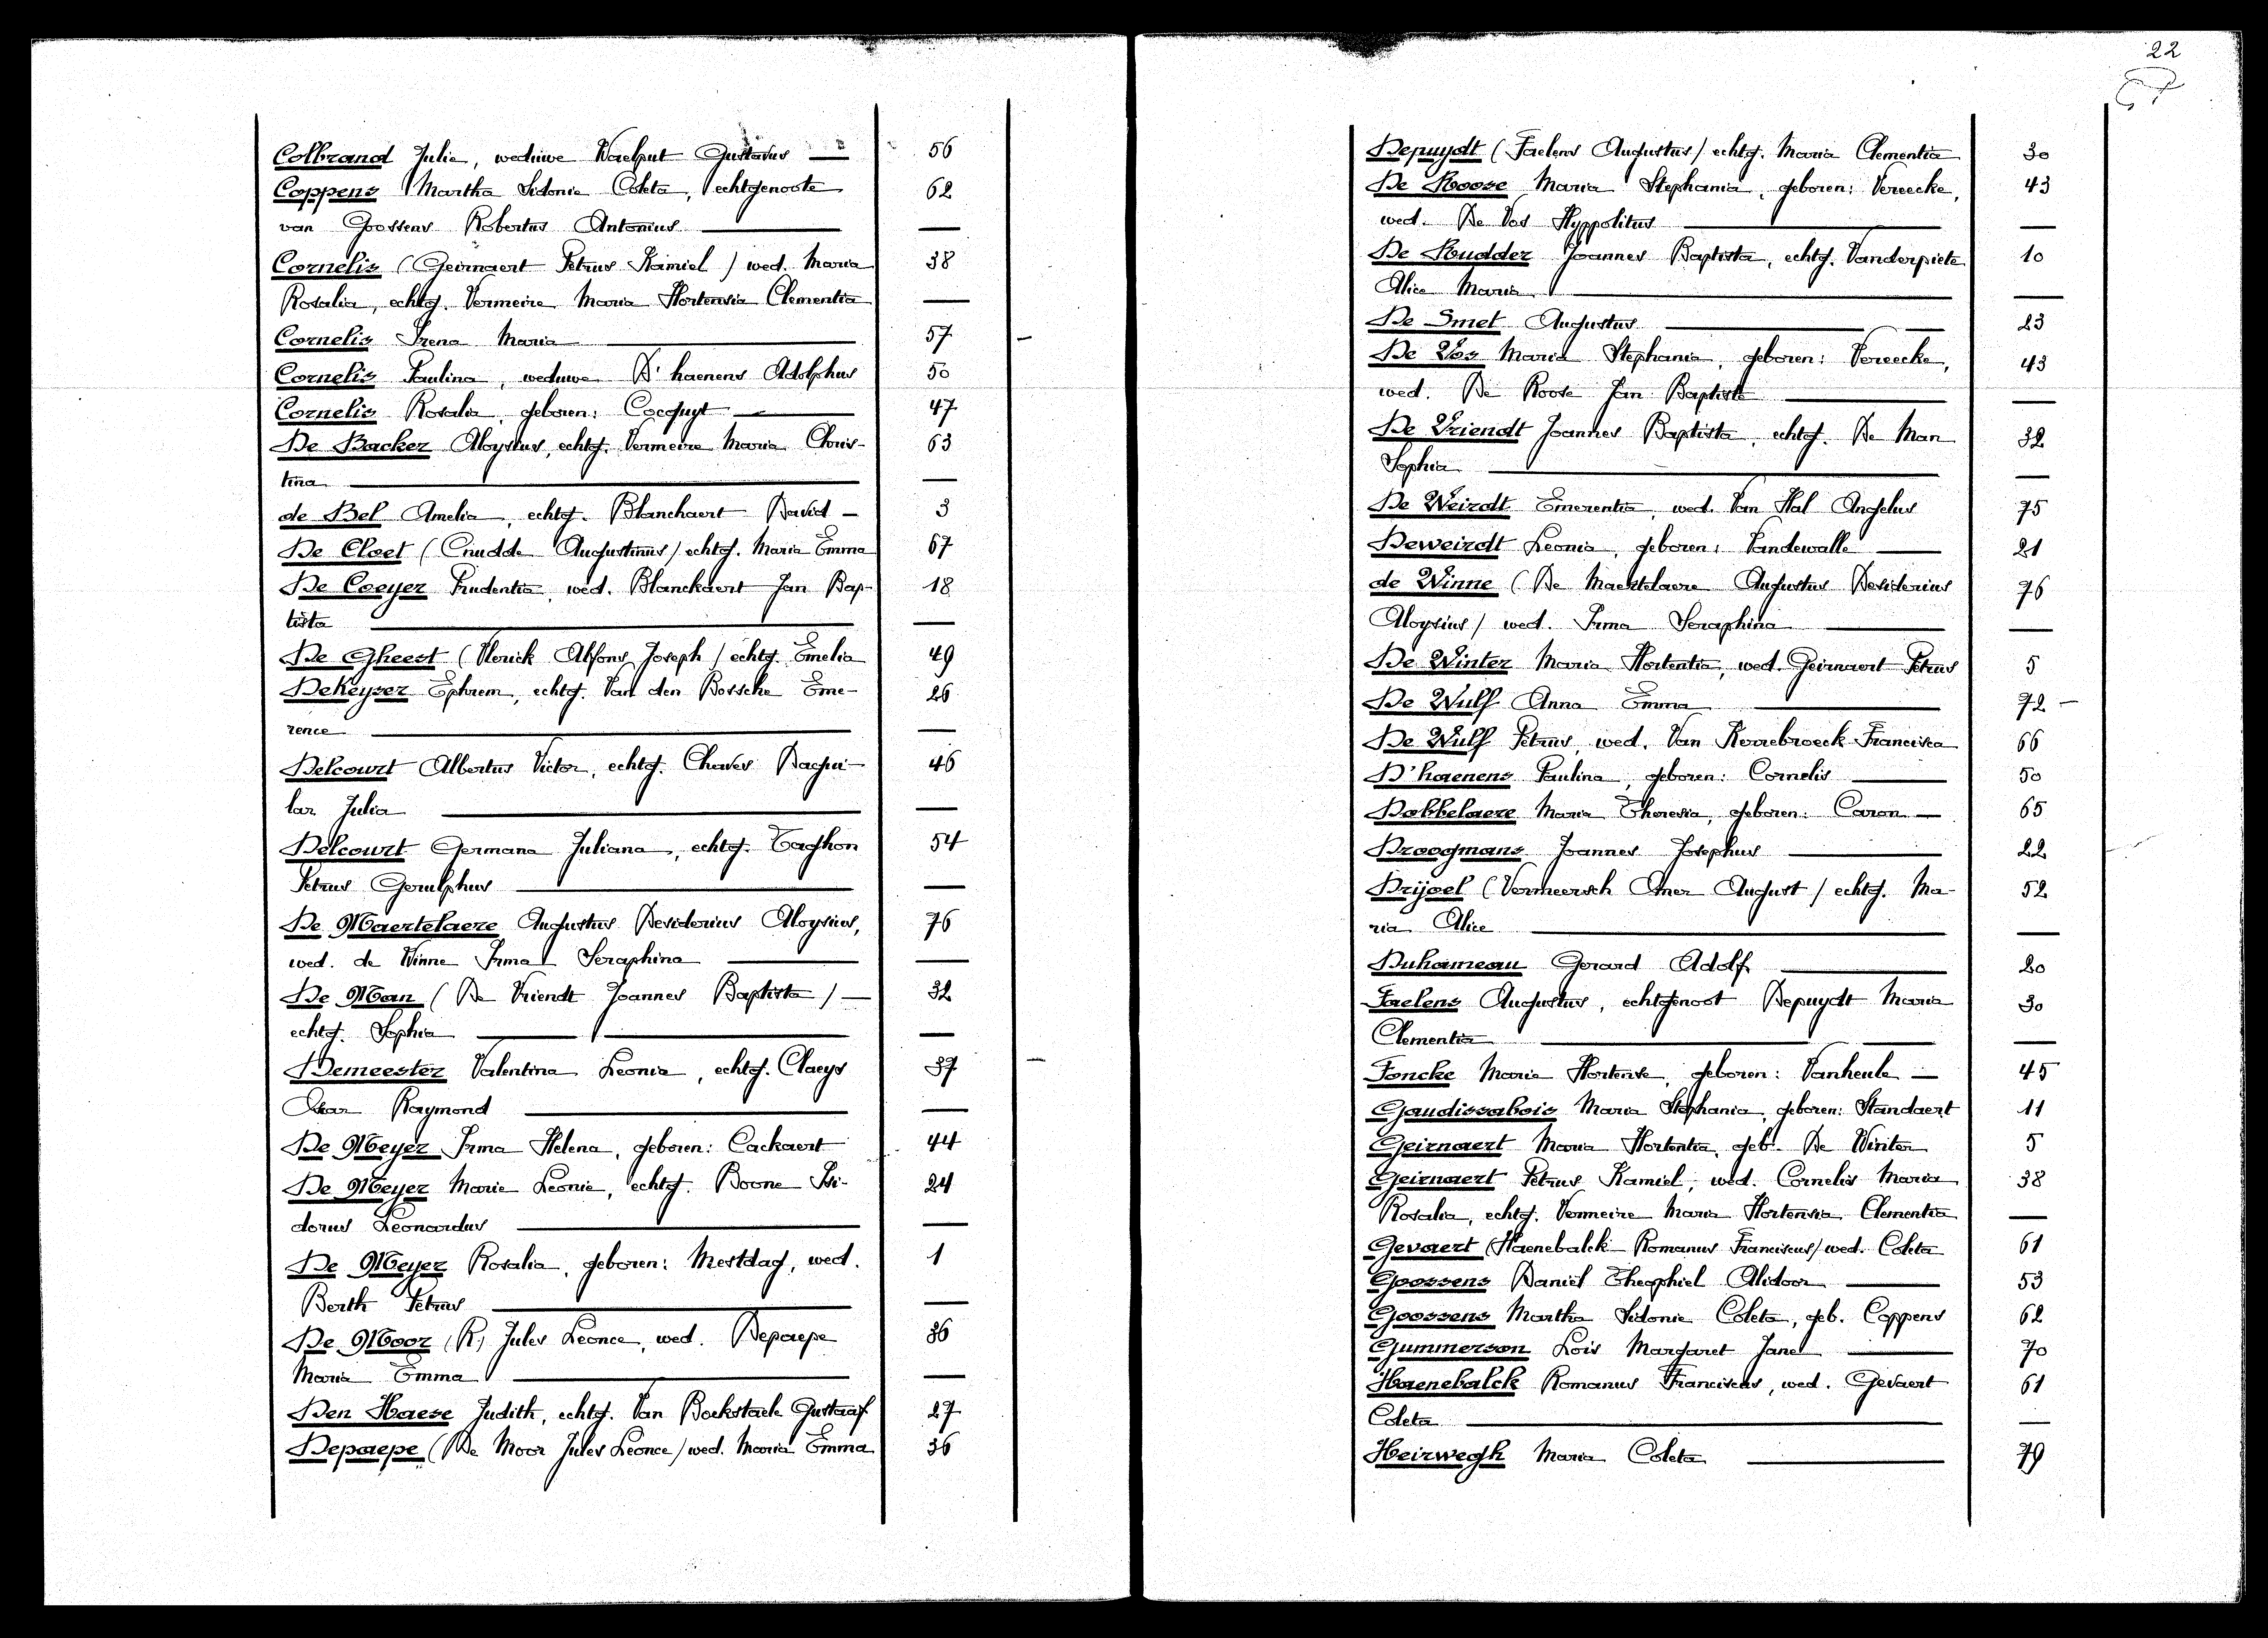 Colbrand Julie, weduwe Waelput Gustavus — 56
Coppens Martha Sidonie Coleta, echtgenoote 62
van Goossens Robertus Antonius — —
Cornelis (Geirnaert Petrus Kamiel) wed. Maria 38
Rosalia, echtg. Vermeire Maria Hortensia Clementia —
Cornelis Irena Maria — 57 —
Cornelis Paulina, weduwe D'haenens Adolphus 50
Cornelis Rosalia, geboren: Cocquyt — 47
De Backer Aloysius, echtg. Vermeire Maria Chris- 63
tina — —
de Bel Amelia, echtg. Blanchaert David — 3
De Cloet (Cnudde Augustinus) echtg. Maria Emma 67
De Coeyer Prudentia, wed. Blanckaert Jan Bap- 18
tista — —
De Gheest (Vlerick Alfons Joseph) echtg. Emelia 49
DeKeyser Ephrem, echtg. Van den Bossche Eme- 26
rence — —
Delcourt Albertus Victor, echtg. Chaves Daqui- 46
lar Julia — —
Delcourt Germana Juliana, echtg. Taghon 54
Petrus Gerulphus — —
De Maertelaere Augustus Desiderius Aloysius, 76
wed. de Winne Irma Seraphina — —
De Man (De Vriendt Joannes Baptista) — 32
echtg. Sophia — —
Demeester Valentina Leonia, echtg. Claeys 37 —
Oscar Raymond — —
De Meyer Irma Helena, geboren: Cackaert 44
De Meyer Marie Leonie, echtg. Boone Isi- 24
dorus Leonardus — —
De Meyer Rosalia, geboren: Mestdag, wed. 1
Berth Petrus — —
De Moor (R) Jules Leonce, wed. Depaepe 36
Maria Emma — —
Den Haese Judith, echtg. Van Bockstaele Gustaaf 27
Depaepe (De Moor Jules Leonce) wed. Maria Emma 36
22
Depuydt (Faelens Augustus) echtg. Maria Clementia 30
De Roose Maria Stephania, geboren: Vereecke, 43
wed. De Vos Hyppolitus — —
De Rudder Joannes Baptista, echtg. Vanderpiete 10
Alice Maria — —
De Smet Augustus — 23
De Vos Maria Stephania, geboren: Vereecke, 43
wed. De Roose Jan Baptiste — —
De Vriendt Joannes Baptista, echtg. De Man 32
Sophia — —
De Weirdt Emerentia, wed. Van Hal Angelus 75
Deweirdt Leonia, geboren: Vandewalle — 21
de Winne (De Maertelaere Augustus Desiderius 76
Aloysius) wed. Irma Seraphina — —
De Winter Maria Hortentia, wed. Geirnaert Petrus 5
De Wulf Anna Emma — 72 —
De Wulf Petrus, wed. Van Kerrebroeck Francisca 66
D'haenens Paulina, geboren: Cornelis — 50
Dobbelaere Maria Theresia, geboren: Caron — 65
Droogmans Joannes Josephus — 22
Drijoel (Vermeersch Omer August) echtg. Ma- 52
ria Alice — —
Duhameau Gerard Adolf — 20
Faelens Augustus, echtgenoot Depuydt Maria 30
Clementia — —
Foncke Marie Hortense, geboren: Vanheule — 45
Gaudissabois Maria Stephania, geboren: Standaert 11
Geirnaert Maria Hortentia, geb. De Winter 5
Geirnaert Petrus Kamiel, wed. Cornelis Maria 38
Rosalia, echtg. Vermeire Maria Hortensia Clementia —
Gevaert (Haenebalck Romanus Franciscus) wed. Coleta 61
Goossens Daniël Theophiel Alidoor — 53
Goossens Martha Sidonie Coleta, geb. Coppens 62
Gummerson Lois Margaret Jane — 70
Haenebalck Romanus Franciscus, wed. Gevaert 61
Coleta — —
Heirwegh Maria Coleta — 79